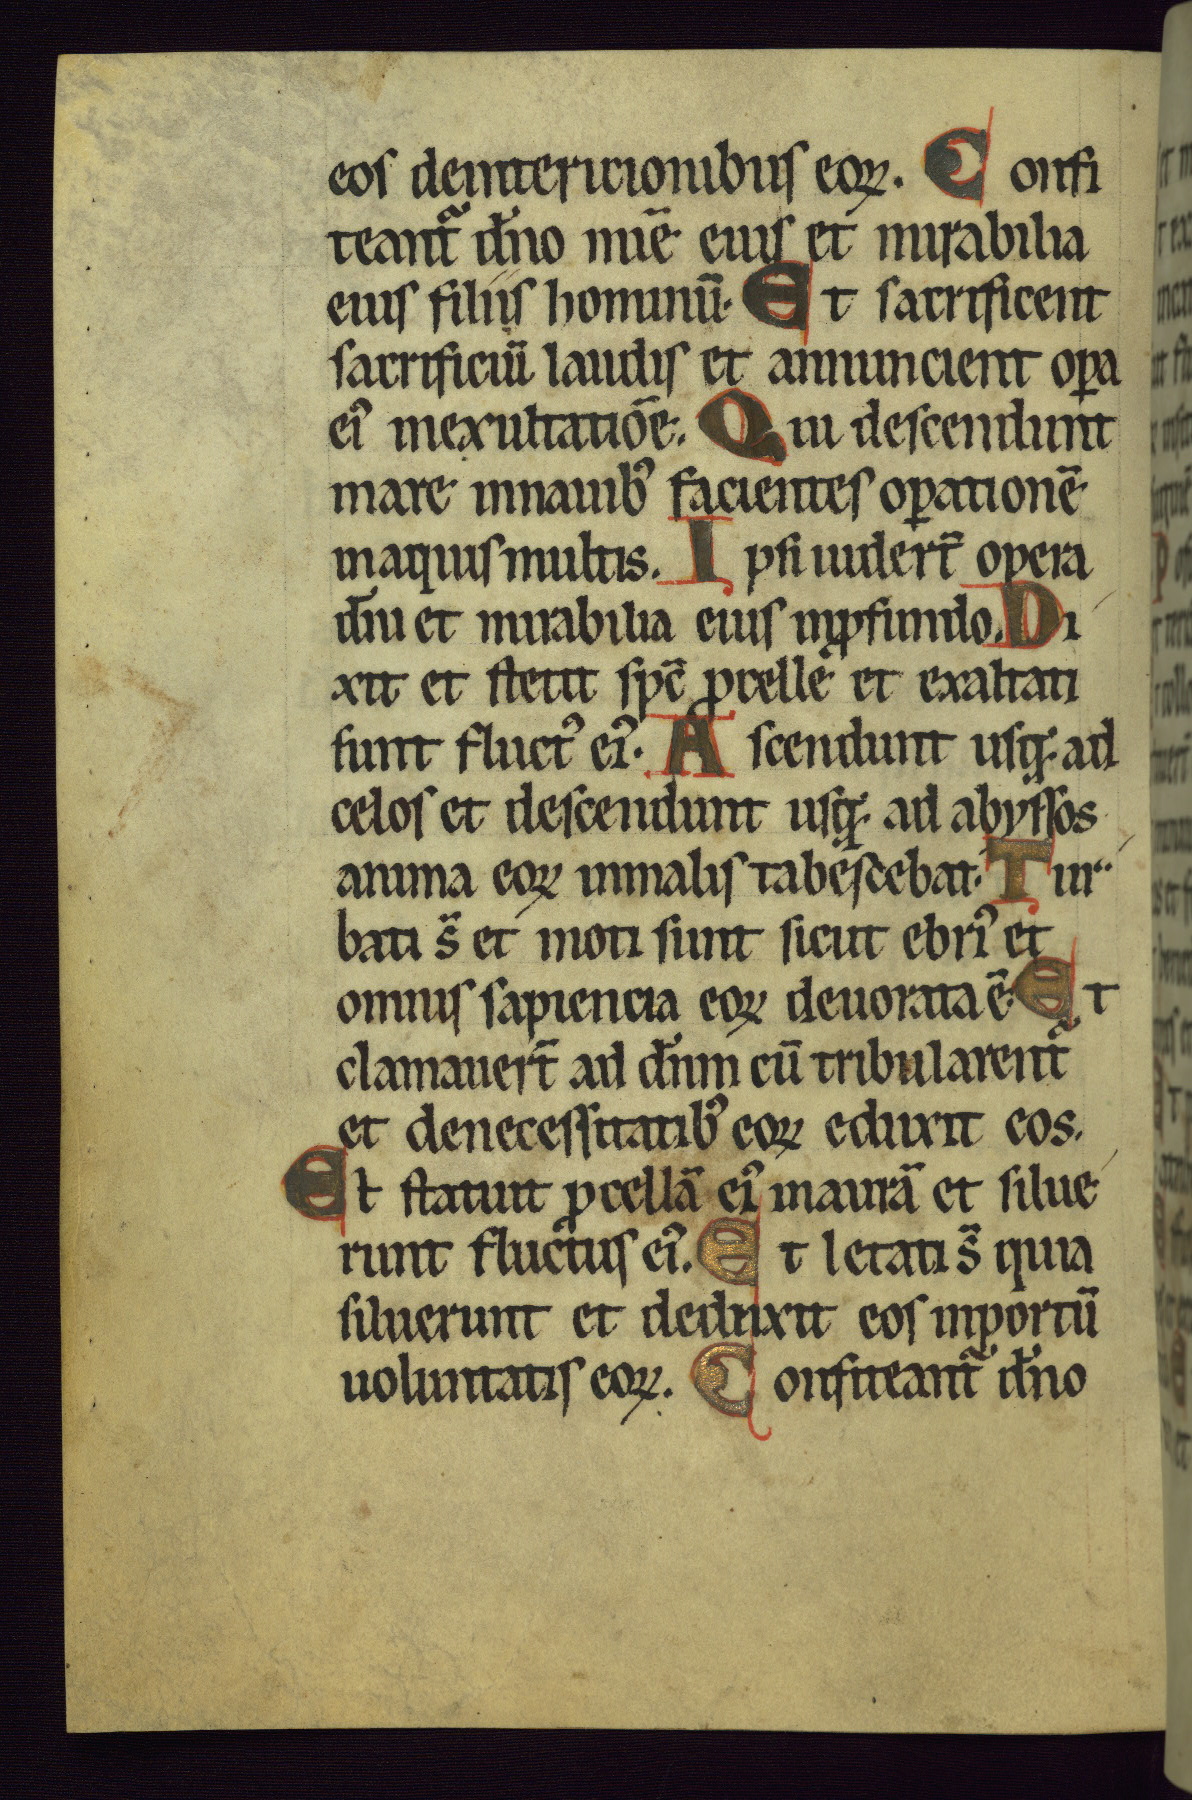 eos deintericionibus eoꝝ. Confi
teant᷑ dn̄o mīe eius et mirabilia
eius filiis hominū. Et sacrificent
sacrificiū laudis et annuncient oꝑa
ei᷒ inexultatiōe. Qui descendunt
mare innauib᷒ facientes oꝑationē
inaquis multis. Ipsi uidert̄ opera
dn̄i et mirabilia eius inꝓfundo. Di
xit et stetit spc̄ ꝓcelle et exaltati
sunt fluct᷒ ei᷒. Ascendunt usq; ad
celos et descendunt usq; ad abyssos
anima eoꝝ inmalis tabescebat. Tur
bati s̄ et moti sunt sicut ebri᷒ et
omnis sapiencia eoꝝ deuorata ē. Et
clamauert̄ ad dn̄m cū tribularent᷑
et denecessitatib᷒ eoꝝ eduxit eos.
Et statuit ꝓcellā ei᷒ inaurā et silue
runt fluctus ei᷒. Et letati s̄ quia
siluerunt et deduxit eos inportū
uoluntatis eoꝝ. Confiteant᷑ dn̄o